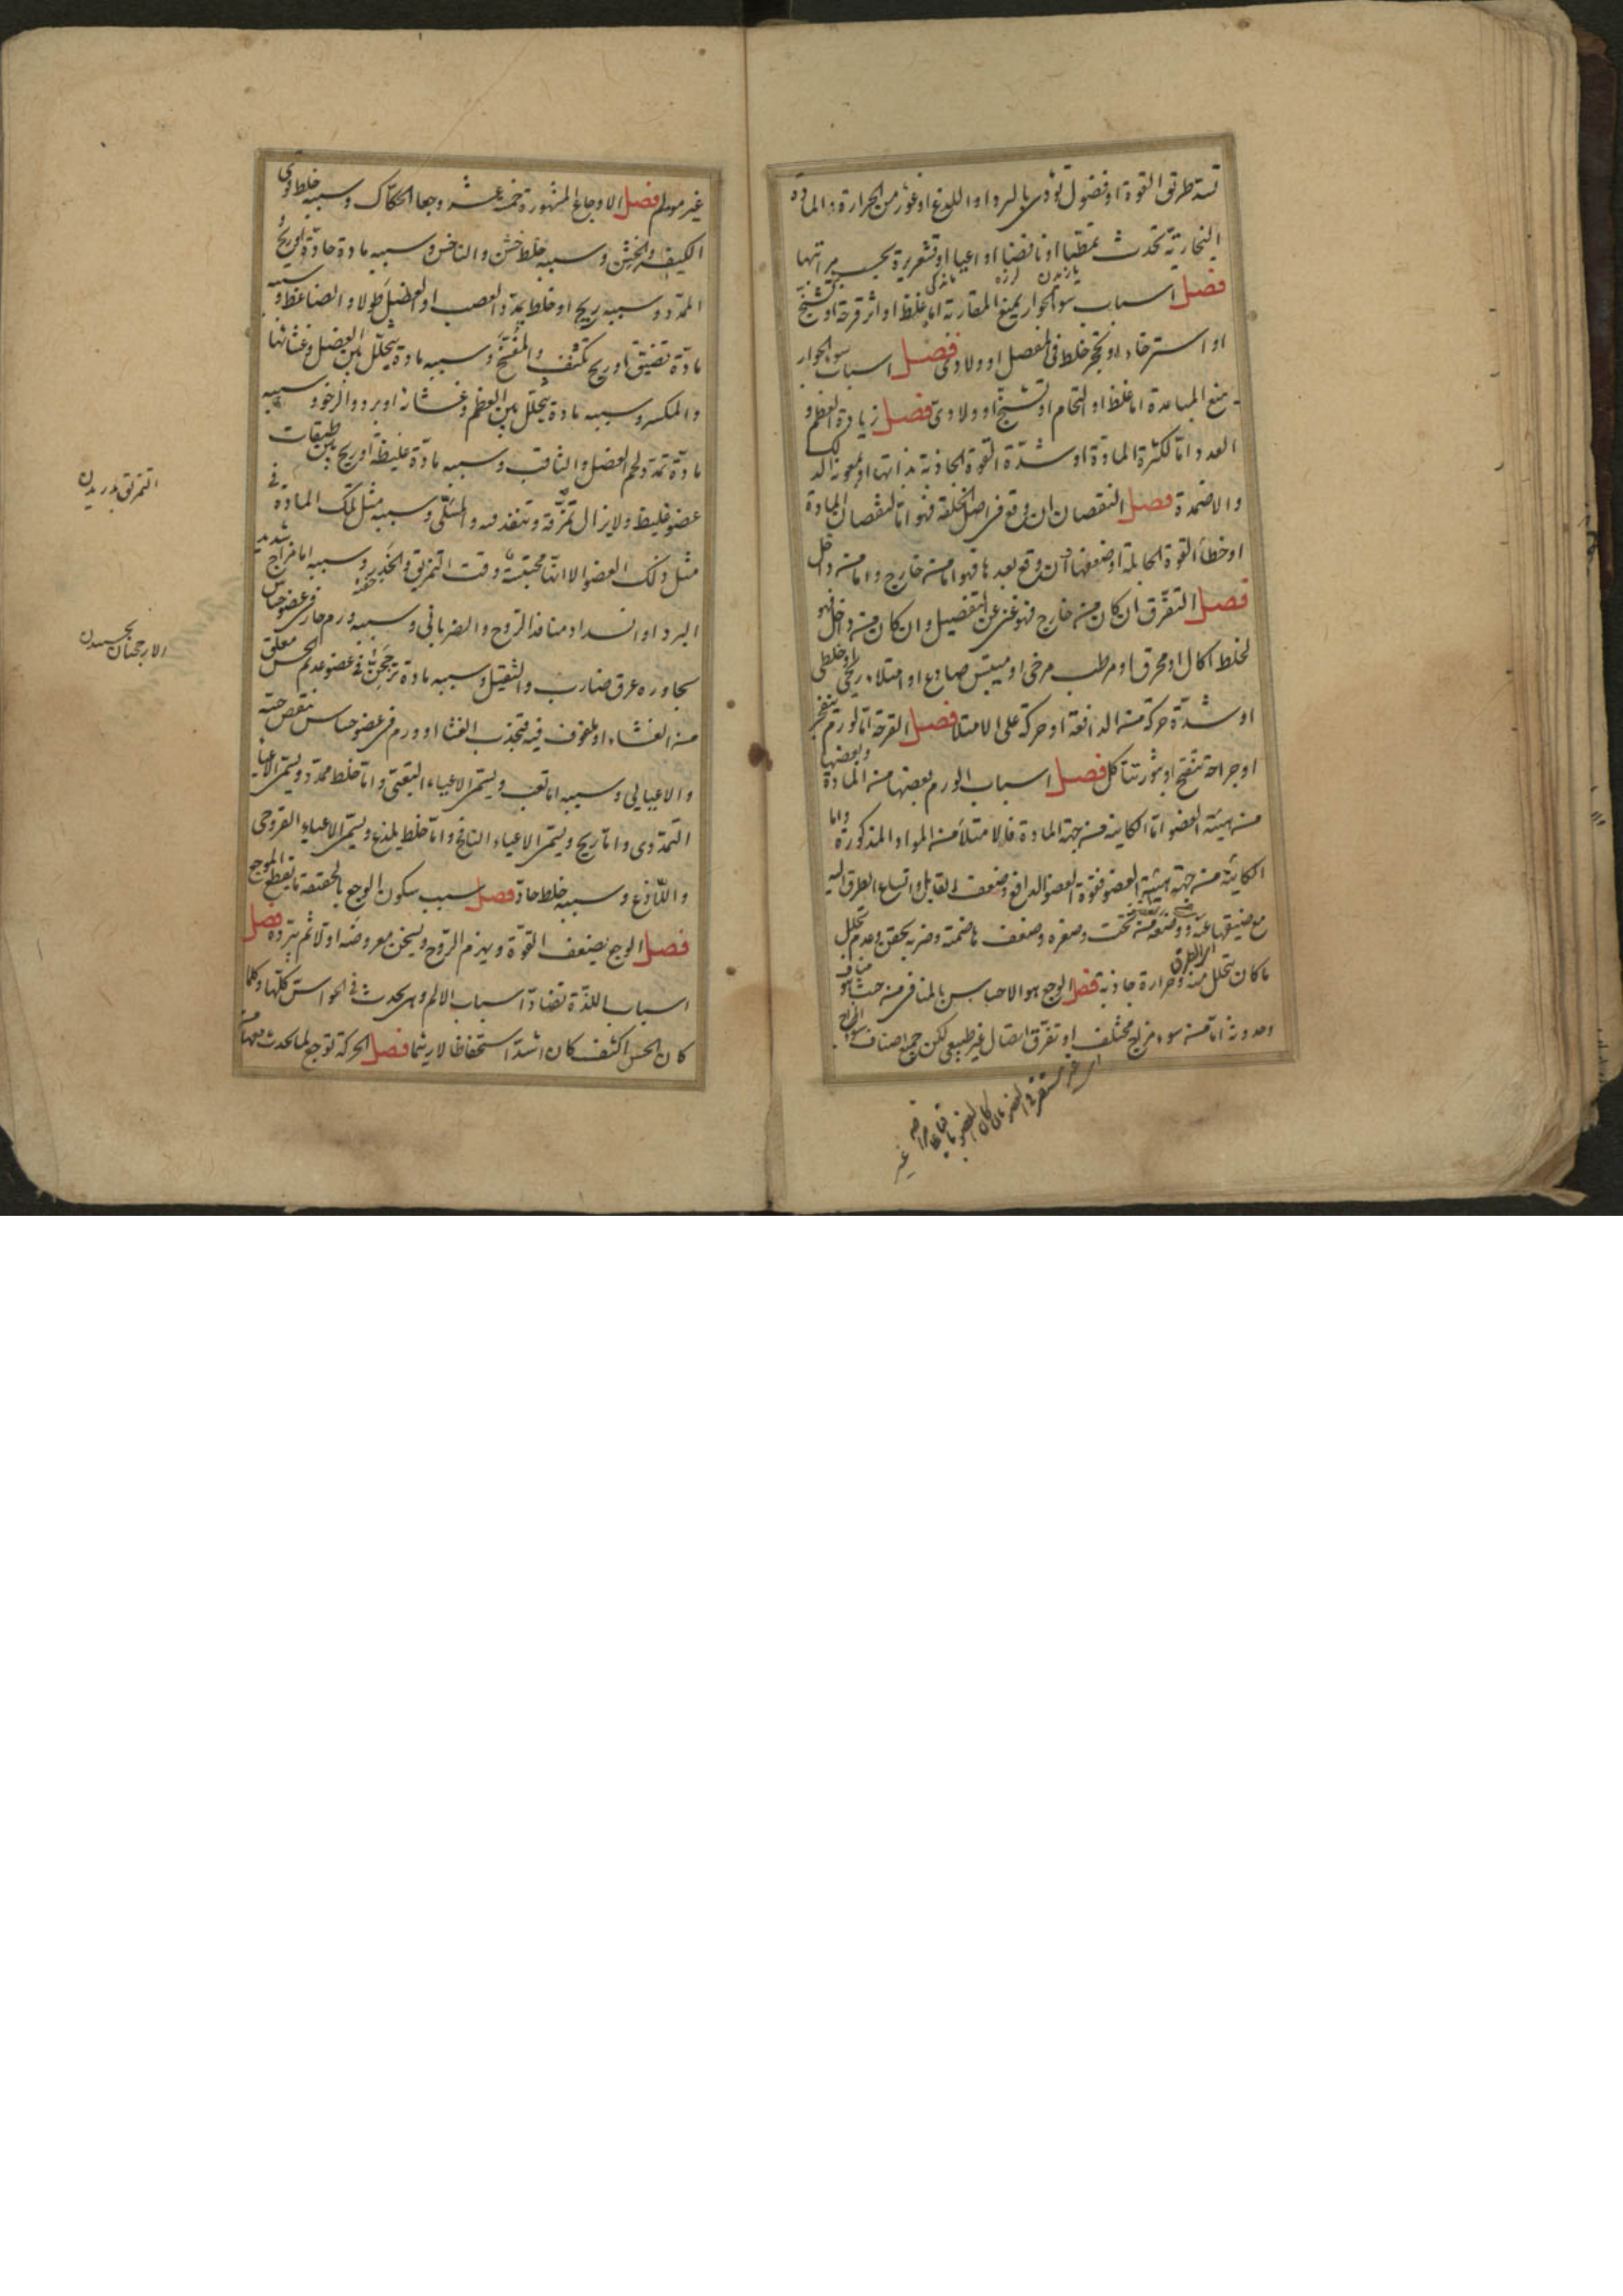 تسد طريق القوة او فضول تؤذى بالبرد او اللذع او غور من الحرارة والمادة
البخارية تحدث تمطيا او نافضا او اعيا او قشعريرة بحسب مراتبها
فصل اسباب سوء الجوار يمنع المقاربة اما غلظ او اثر قرحة او تشنج
او استرخاء او تحجر خلط فى المفصل او ولادى فصل اسباب سوء الجوار
يمنع المباعدة اما غلظ او التحام او تشنج او ولادى فصل زيادة العظم و
العدد اما لكثرة المادة او شدة القوة الجاذبة بذاتها او لمعونة الدلك
والاضمدة فصل النقصان ان وقع فى اصل الخلقة فهو اما لنقصان المادة
او خطأ القوة الحابلة او ضعفها وان وقع بعدها فهو اما من خارج واما من داخل
فصل التفرق ان كان من خارج فهو غنى عن التفصيل وان كان من داخل فهو
لخلط اكال او محرق او مرطب مرخى او ميبس صادع او امتلاء ريحى او خلطى
او شدة حركة من الدافعة او حركة على الامتلا فصل القرحة اما لورم ينفجر
او جراحة تتقيح او بثور تتاكل فصل اسباب الورم بعضها من المادة وبعضها
من هيئة العضو اما الكاينة من جهة المادة فالامتلأ من المواد المذكورة واما
الكاينة من جهة هيئة العضو فقوة العضو الدافع وضعف القابل واتساع الطرق اليه
مع ضيقها عنه ووضعه من تحت وصغره وضعف هاضمته وضربه يحقن وعدم تحلل
ما كان يتحلل منه وحرارة جاذبة فصل الوجع هو الاحساس بالمنافى من حيث هو مناف
وحدوثه اما من سوء مزاج مختلف او تفرق اتصال غير طبيعى لكن جميع اصناف سوء المزاج
غير مولم فصل الاوجاع المشهورة خمسة عشر وجعا الحكاك وسببه خلط قوى
الكيفية والخشن وسببه خلط خشن والناخس وسببه مادة حادة او ريح و
الممدد وسببه ريح او خلط يمدد العصب او العضل طولا والضاغط و سببه
مادة تضيق او ريح تكتنف والمفسخ وسببه مادة يتحلل بين العضل وغشائها
والمكسر وسببه مادة يتحلل بين العظم وغشائه او برد والرخو وسببه
مادة تمدد لحم العضل والثاقب وسببه مادة غليظة او ريح بين طبقات
عضو غليظ ولا يزال تمزقه وتنفذ فيه والمسلى وسببه مثل تلك المادة فى
مثل ذلك العضو الا انها محتبسة وقت التمزيق والخدر وسببه اما مزاج شديد
البرد او انسداد منافذ الروح والضربانى وسببه ورم حار فى عضو حساس
يجاوره عرق ضارب والثقيل وسببه مادة ترجحن فى عضو عديم الحس معلق
من الغشاء او ملفوف فيه فتجذب الغشا او ورم فى عضو حساس ينقص حسه
والاعيائى وسببه اما تعب ويسمى الاعياء التعبى واما خلط ممدد ويسمى الاعيا
التمددى واما ريح ويسمى الاعياء النافخ واما خلط يلذع ويسمى الاعياء القروحى
واللاذع وسببه خلط حاد فصل سبب سكون الوجع بالحقيقة ما يقطع الموجع
فصل الوجع يضعف القوة ويهزم الروح ويسخن معروضه اولا ثم يبرده فصل
اسباب اللذة تضاد اسباب الالم وهى تحدث فى الحواس كلها وكلما
كان الحس اكثف كان اشد استحفاظا لا ريثما فصل الحركة توجع لما يحدث معها من
التمزيق بدريدن
الارجحنان بجسبيدن